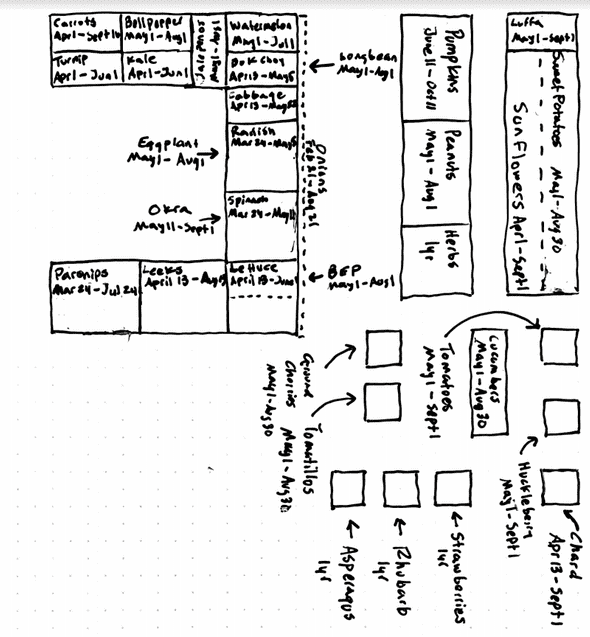 Carrots
Apri - Sept 16
Bellpepper
May 1 - Aug 1
Watermelon
May 1 - Jul 1
Turnip
Apri - Jun 1
Kale
April - Jun 1
Bok Choy
Apr 13 - May 5
Cabbage
Radish
Mar 24 - May 5
Spinach
Mar 24 - May 11
Parsnips
Mar 24 - Jul 24
Leeks
April 13 - Aug 13
Lettuce
April 13 - June 1
Onions
Feb 21 - Aug 21
Longbean
May 1 - Aug 1
Eggplant
May 1 - Aug 1
Okra
May 11 - Sept 1
BEP
May 1 - Aug 1
Pumpkins
June 11 - Oct 11
Peanuts
May 1 - Aug 1
Herbs
1yr
Luffa
May 1 - Sept 1
Sweet Potatoes May 1 - Aug 30
Sunflowers Apr 1 - Sept 1
Ground
Cherries
May 1 - Aug 30
Tomatillos
May 1 - Aug 30
Tomatoes
May 1 - Sept 1
Cucumbers
May 1 - Aug 30
Huckleberry
May 1 - Sept 1
Chard
Apr 13 - Sept 1
Strawberries
1yr
Rhubarb
1yr
Asparagus
1yr